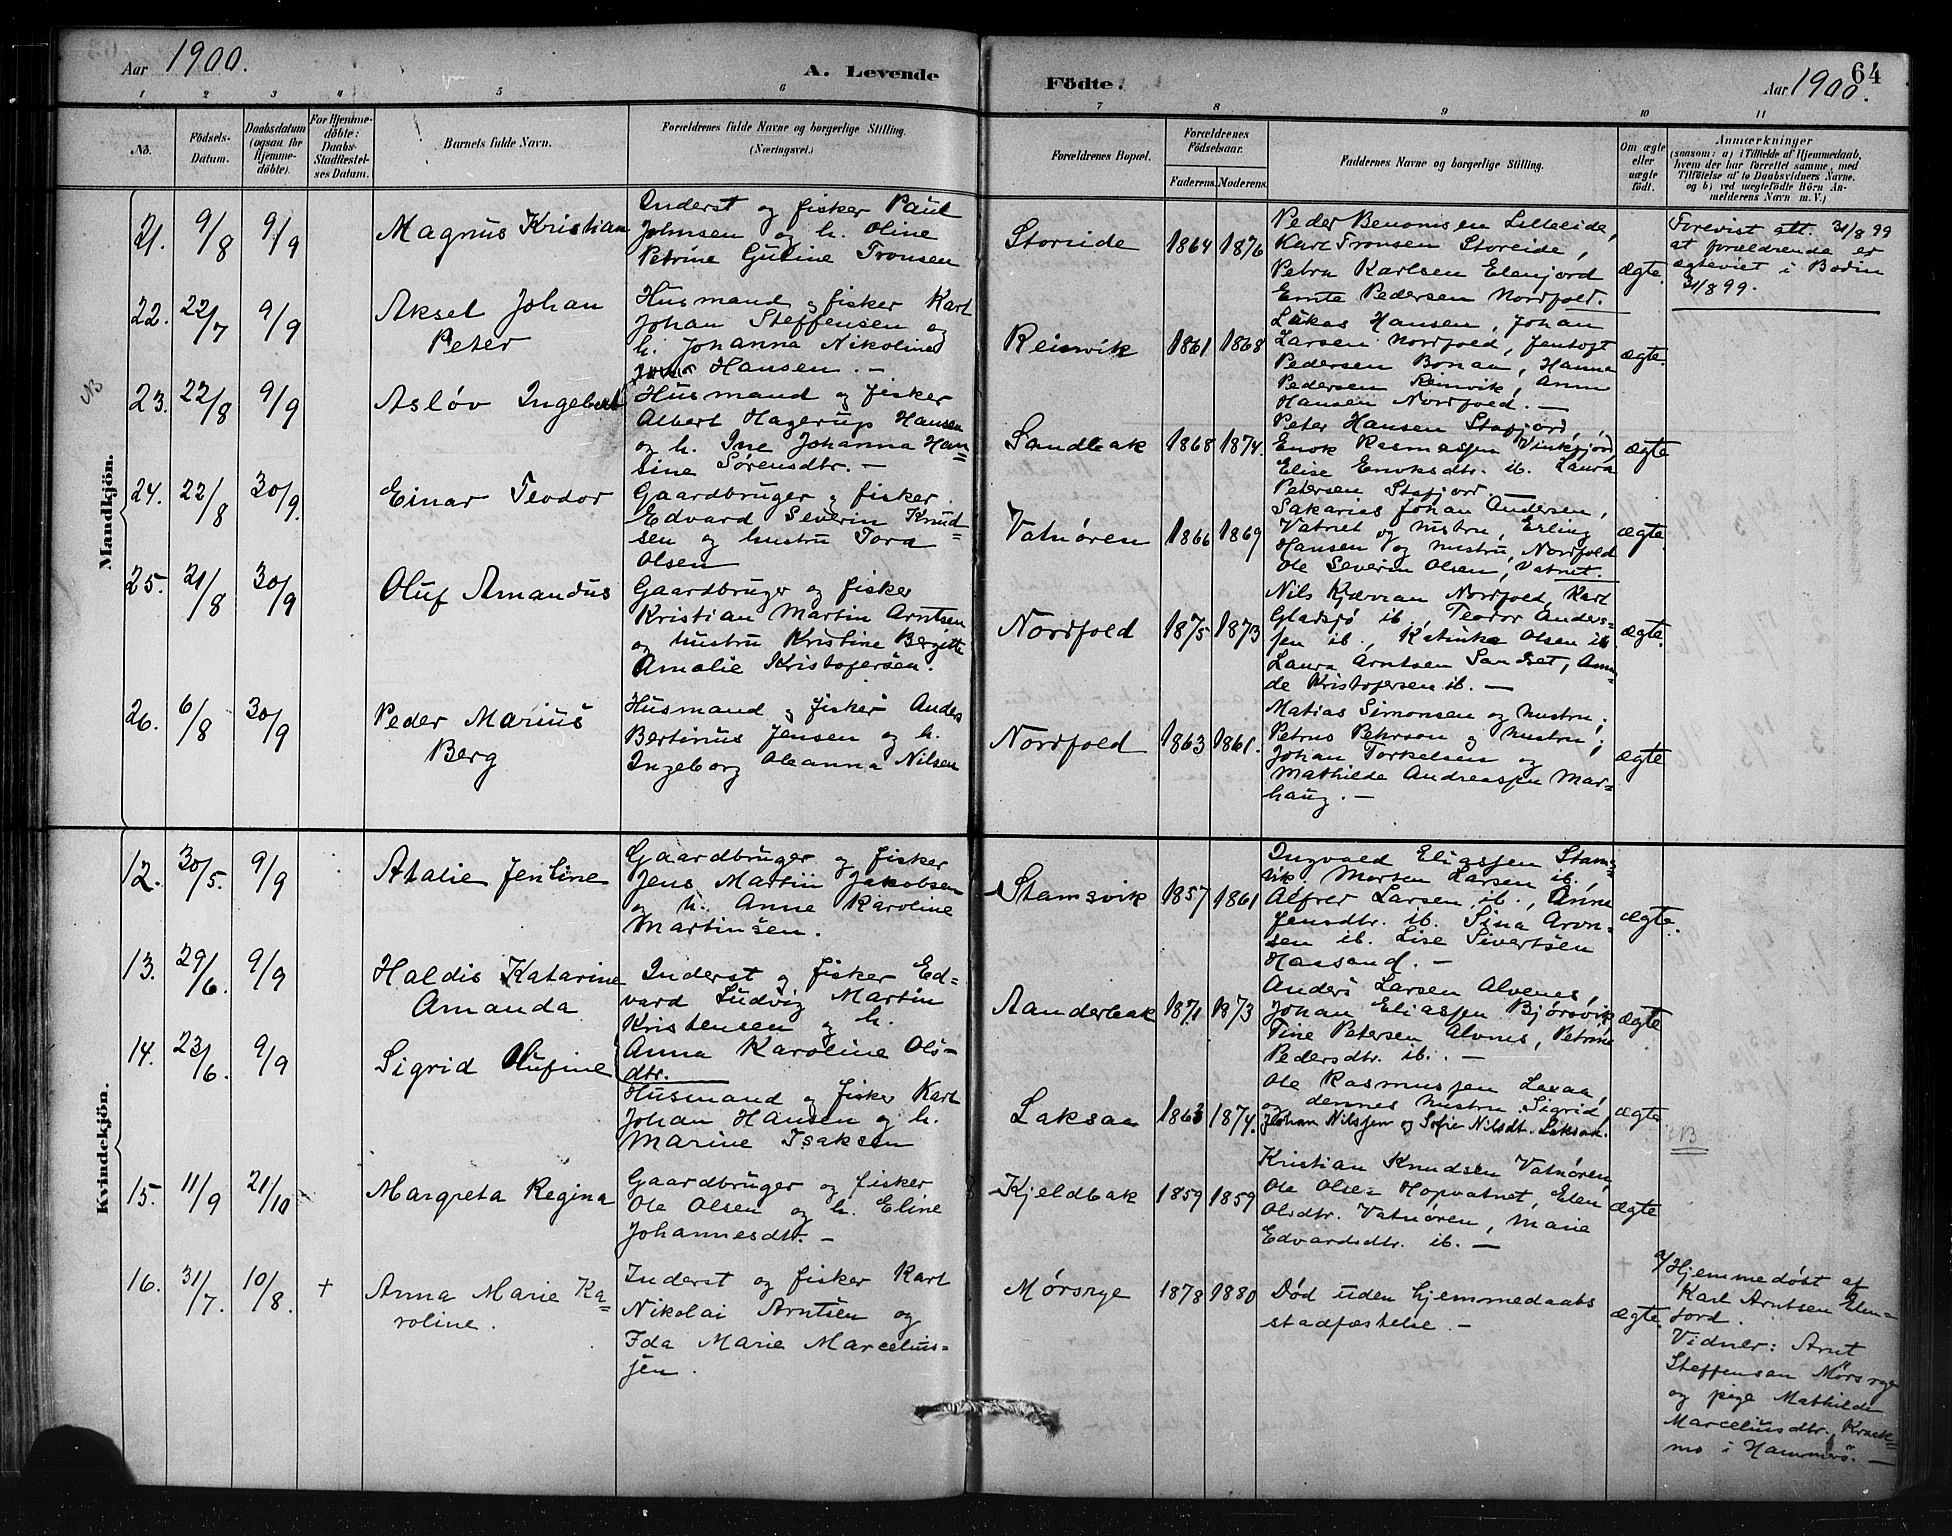 Aar 1900.
A. Levende
Födte.
Aar 1900.
64
1 2 3 4 5 6 7 8 9 10 11
No.
Födsels-
Datum.
Daabsdatum
(ogsaa for
Hjemme-
döbte).
For Hjemme-
döbte:
Daabs-
Stadfæstel-
ses Datum.
Barnets fulde Navn.
Forældrenes fulde Navne og borgerlige Stilling.
(Næringsvei.)
Forældrenes Bopæl.
Forældrenes
Födselsaar.
Faderens. Moderens.
Faddernes Navne og borgerlige Stilling.
Om ægte
eller
uægte
födt.
Anmærkninger
(saasom: a) i Tilfælde af Hjemmedaab,
hvem der har forrettet samme, med
Tilföielse af to Daabsvidners Navne.
og b) ved uægtefödte Börn An-
melderens Navn m. V.)
Mandkjön.
21. 9/8 9/9
Magnus Kristian
Inderst og fisker Paul
Johnsen og h. Oline
Petrine Gurine Tronsen
Storeide
1864 1876
Peder Benonisen Lilleeide,
Karl Tronsen Storeide,
Petra Karlsen Elenfjord
Pedersen Nordfold.
ægte.
Forevist att. 31/8 99
at forældrende er
ægteviet i Bodin
31/8 99.
22. 22/7 9/9
Aksel Johan
Peter
Husmand og fisker Karl
Johan Steffensen og
h. Johanna Nikoline
Hansen. —
Reinvik
1861 1868
Lukas Hansen, Johan
Larsen Nordfold, Jentoft
Pedersen Bonaa, Hanna
Pedersen Reinvik, Anna
Hansen Nordfold. —
ægte.
NB
23. 22/8 9/9
Asløv Ingebert
Husmand og fisker
Albert Hagerup Hansen
og h. Ine Johanna Han=
sine Sørensdtr. —
Sandbak
1868 1874.
Peter Hansen Stafjord,
Enok Rasmussen Vinkfjord,
Elise Enoksdtr. ib. Laura
Petersen Stafjord —
ægte
24. 22/8 30/9.
Einar Teodor
Gaardbruger og fisker
Edvard Severin Knud=
sen og hustru Tora
Olsen
Vatnøren
1866 1869
Sakarias Johan Andersen,
Vatnet og hustru, Erling
Hansen og hustru, Nordfold
Ole Severin Olsen, Vatnet.
ægte.
25. 21/8 30/9
Oluf Amandus
Gaardbruger og fisker
Kristian Martin Arntsen
og hustru Kristine Bergitte
Amalie Kristofersen.
Nordfold
1875 1873
Nils Kjærran Nordfold, Karl
Gladsjø ib., Teodor Anders=
sen ib., Katinka Olsen ib
Laura Arntsen Sandset, Aman=
de Kristofersen ib. —
ægte.
26. 6/8 30/9
Peder Marius
Berg
Husmand og fisker Anders
Bertinus Jensen og h.
Ingeborg Oleanna Nilsen
Nordfold
1863 1861.
Matias Simonsen og hustru;
Petrus Pehrson og hustru;
Johan Torkelsen og
Mathilde Andreassen Mar=
haug. —
ægte
Kvindekjön.
12. 30/5. 9/9
Atalie Jentine
Gaardbruger og fisker
Jens Martin Jakobsen
og h. Anne Karoline
Martinsen.
Stamsvik
1857 1861
Ingvald Eliassen Stams=
vik. Morten Larsen ib.,
Alfred Larsen ib., Anna
Jensdtr. ib. Sina Aron=
sen ib. Lise Sivertsen
Haasand. —
ægte.
13. 29/6. 9/9
Haldis Katarine
Amanda
Inderst og fisker Ed=
vard Ludvig Martin
Kristensen og h.
Anna Karoline Ols=
dtr.
Aanderbak
1871 1873
Anders Larsen Alvenes,
Johan Eliassen Bjørsvik,
Tine Petersen Alvnes, Petrine
Pedersdtr. ib. —
ægte
14. 23/6. 9/9
Sigrid Olufine
Husmand og fisker Karl
Johan Hansen og h.
Marine Isaksen
Laksaa
1863 1874.
Ole Rasmussen Laxaa,
og dennes hustru Sigrid,
Johan Nilssen og Sofie Nilsdt. Laksaa.
ægte
NB
15. 11/9 21/10
Margreta Regina
Gaardbruger og fisker
Ole Olsen og h. Eline
Johannesdtr. —
Kjeldbak
1859 1859
Kristian Knudsen Vatnøren,
Ole Olsen Hopvatnet, Elen
Olsdtr. Vatnøren, Marie
Edvardsdtr. ib. —
ægte
16. 31/7. 10/8. +
Anna Marie Ka=
roline.
Inderst og fisker Karl
Nikolai Arntsen og
Ida Marie Marcelius=
sen.
Mørsrye
1878 1880
Død uden hjemmedaabs
stadfæstelse. —
ægte.
a/ Hjemmedøbt af
Karl Arntsen Elen=
fjord.
Vidner: Arnt
Steffensen Mørsrye
og pige Mathilde
Marceliusdtr. Kraak=
mo i Hammerø. —